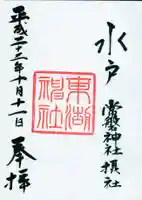 水戸
常磐神社摂社
東湖
神社
奉拝
平成二十三年十月十一日